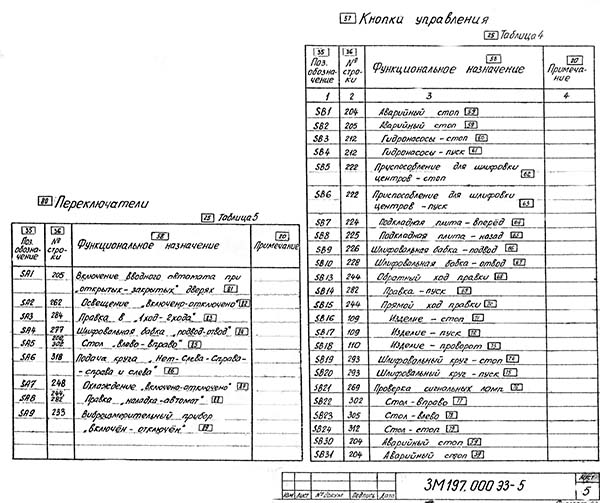 57 Кнопки управления
25 Таблица 4
35 Поз. обозначение
36 № строки
58 Функциональное назначение
20 Примечание
1 2 3 4
SB1 204 Аварийный стоп 59
SB2 205 Аварийный стоп 59
SB3 212 Гидронасосы-стоп 60
SB4 212 Гидронасосы-пуск 61
SB5 222 Приспособление для шлифовки
центров-стоп 62
SB6 222 Приспособление для шлифовки
центров-пуск 63
SB7 224 Подкладная плита-вперёд 64
SB8 225 Подкладная плита-назад 65
SB9 226 Шлифовальная бабка-подвод 66
SB10 228 Шлифовальная бабка-отвод 67
SB13 244 Обратный ход правки 68
SB14 282 Правка-пуск 69
SB15 244 Прямой ход правки 70
SB16 109 Изделие-стоп 71
SB17 109 Изделие-пуск 72
SB18 110 Изделие-проворот 73
SB19 293 Шлифовальный круг-стоп 74
SB20 293 Шлифовальный круг-пуск 75
SB21 269 Проверка сигнальных ламп 76
SB22 302 Стол-вправо 77
SB23 305 Стол-влево 78
SB24 312 Стол-стоп 79
SB30 204 Аварийный стоп 59
SB31 204 Аварийный стоп 59
80 Переключатели
25 Таблица 5
35 Поз. обозначение
36 № строки
58 Функциональное назначение
20 Примечание
SA1 205 Включение вводного автомата при
„открытых-закрытых" дверях 81
SA2 262 Освещение „включено-отключено" 82
SA3 284 Правка в „1ход-2хода" 83
SA4 277 Шлифовальная бабка „подвод-отвод" 84
SA5 Стол „влево-вправо" 85
SA6 318 Подача круга „Нет-Слева-Справа-
-справа и слева" 86
SA7 248 Охлаждение „включено-отключено" 87
SA8 Правка „наладка-автомат" 88
SA9 233 Виброизмерительный прибор
„включён-отключён" 89
3М197.000 ЭЗ-5
Лист
5
Изм Лист № докум Подпись Дата